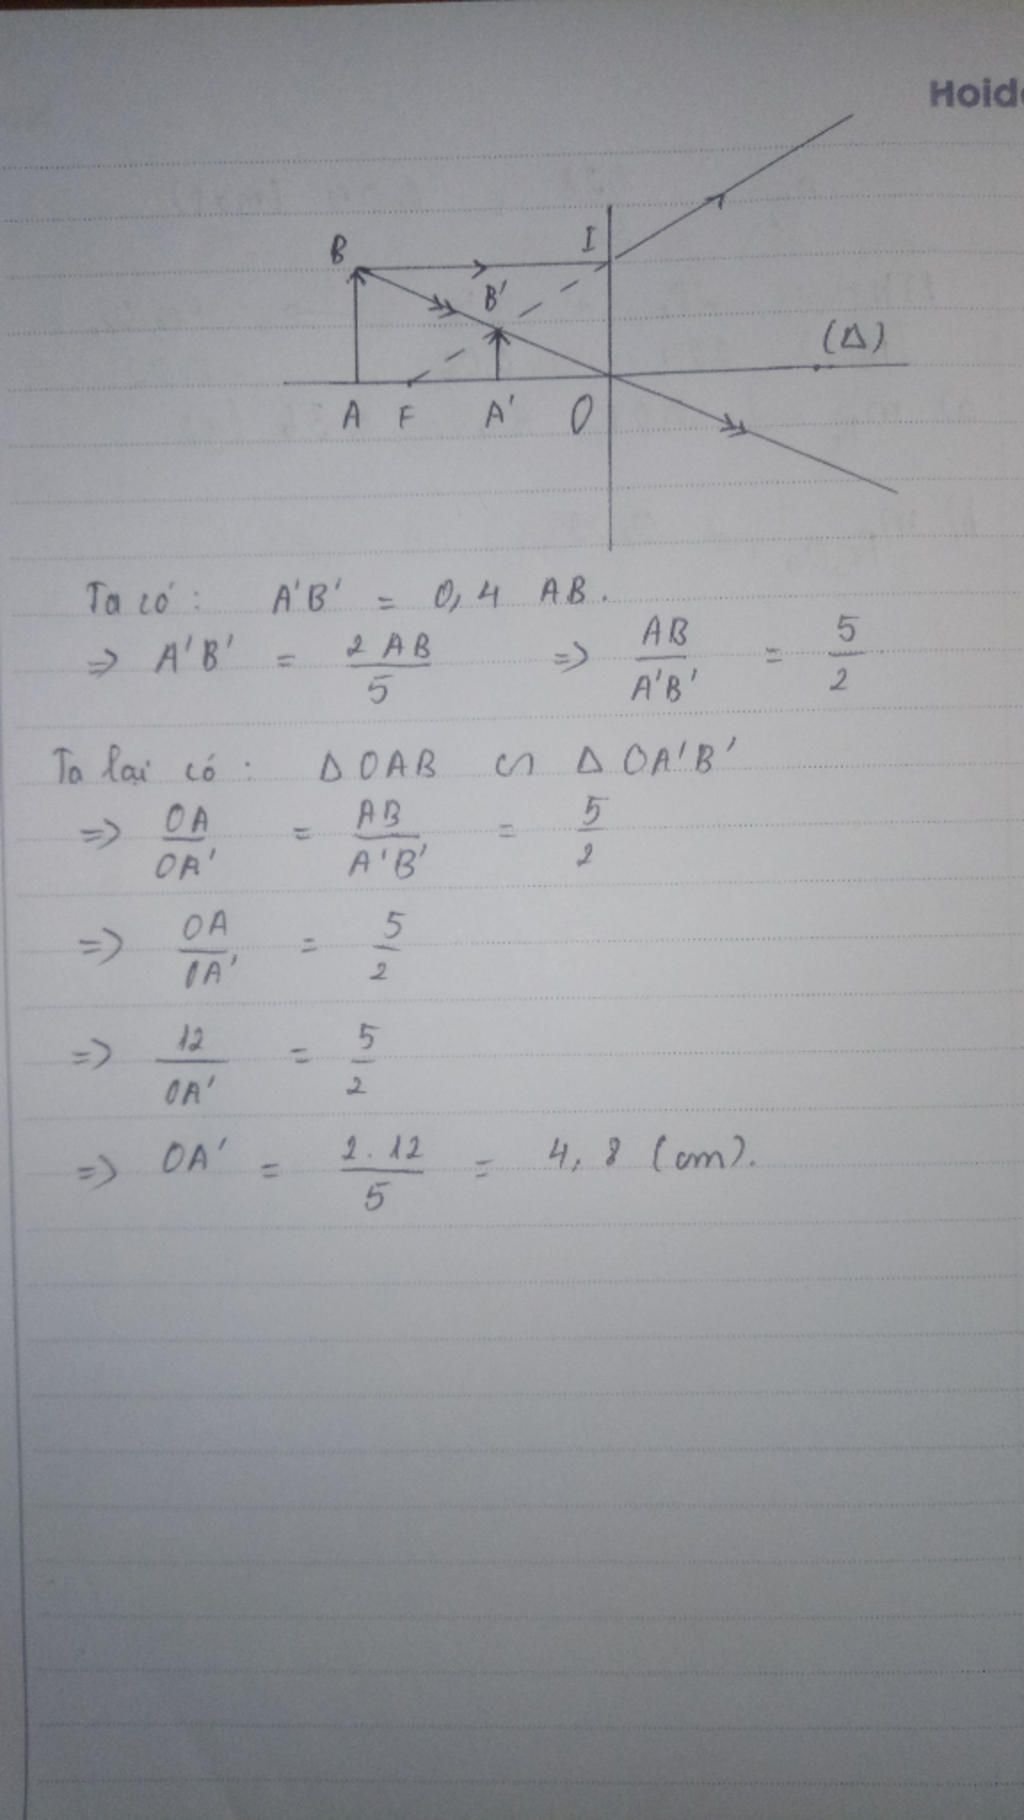 Hoid
B
I
B'
(Δ)
A F A' O
Ta có : A'B' = 0,4 AB.
=> A'B' = 2 AB / 5 => AB / A'B' = 5 / 2
Ta lại có : Δ OAB ∽ Δ OA'B'
=> OA / OA' = AB / A'B' = 5 / 2
=> OA / OA' = 5 / 2
=> 12 / OA' = 5 / 2
=> OA' = 2 . 12 / 5 = 4,8 (cm).